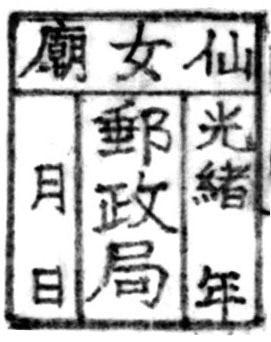 仙女廟
光緒 年
郵政局
月 日